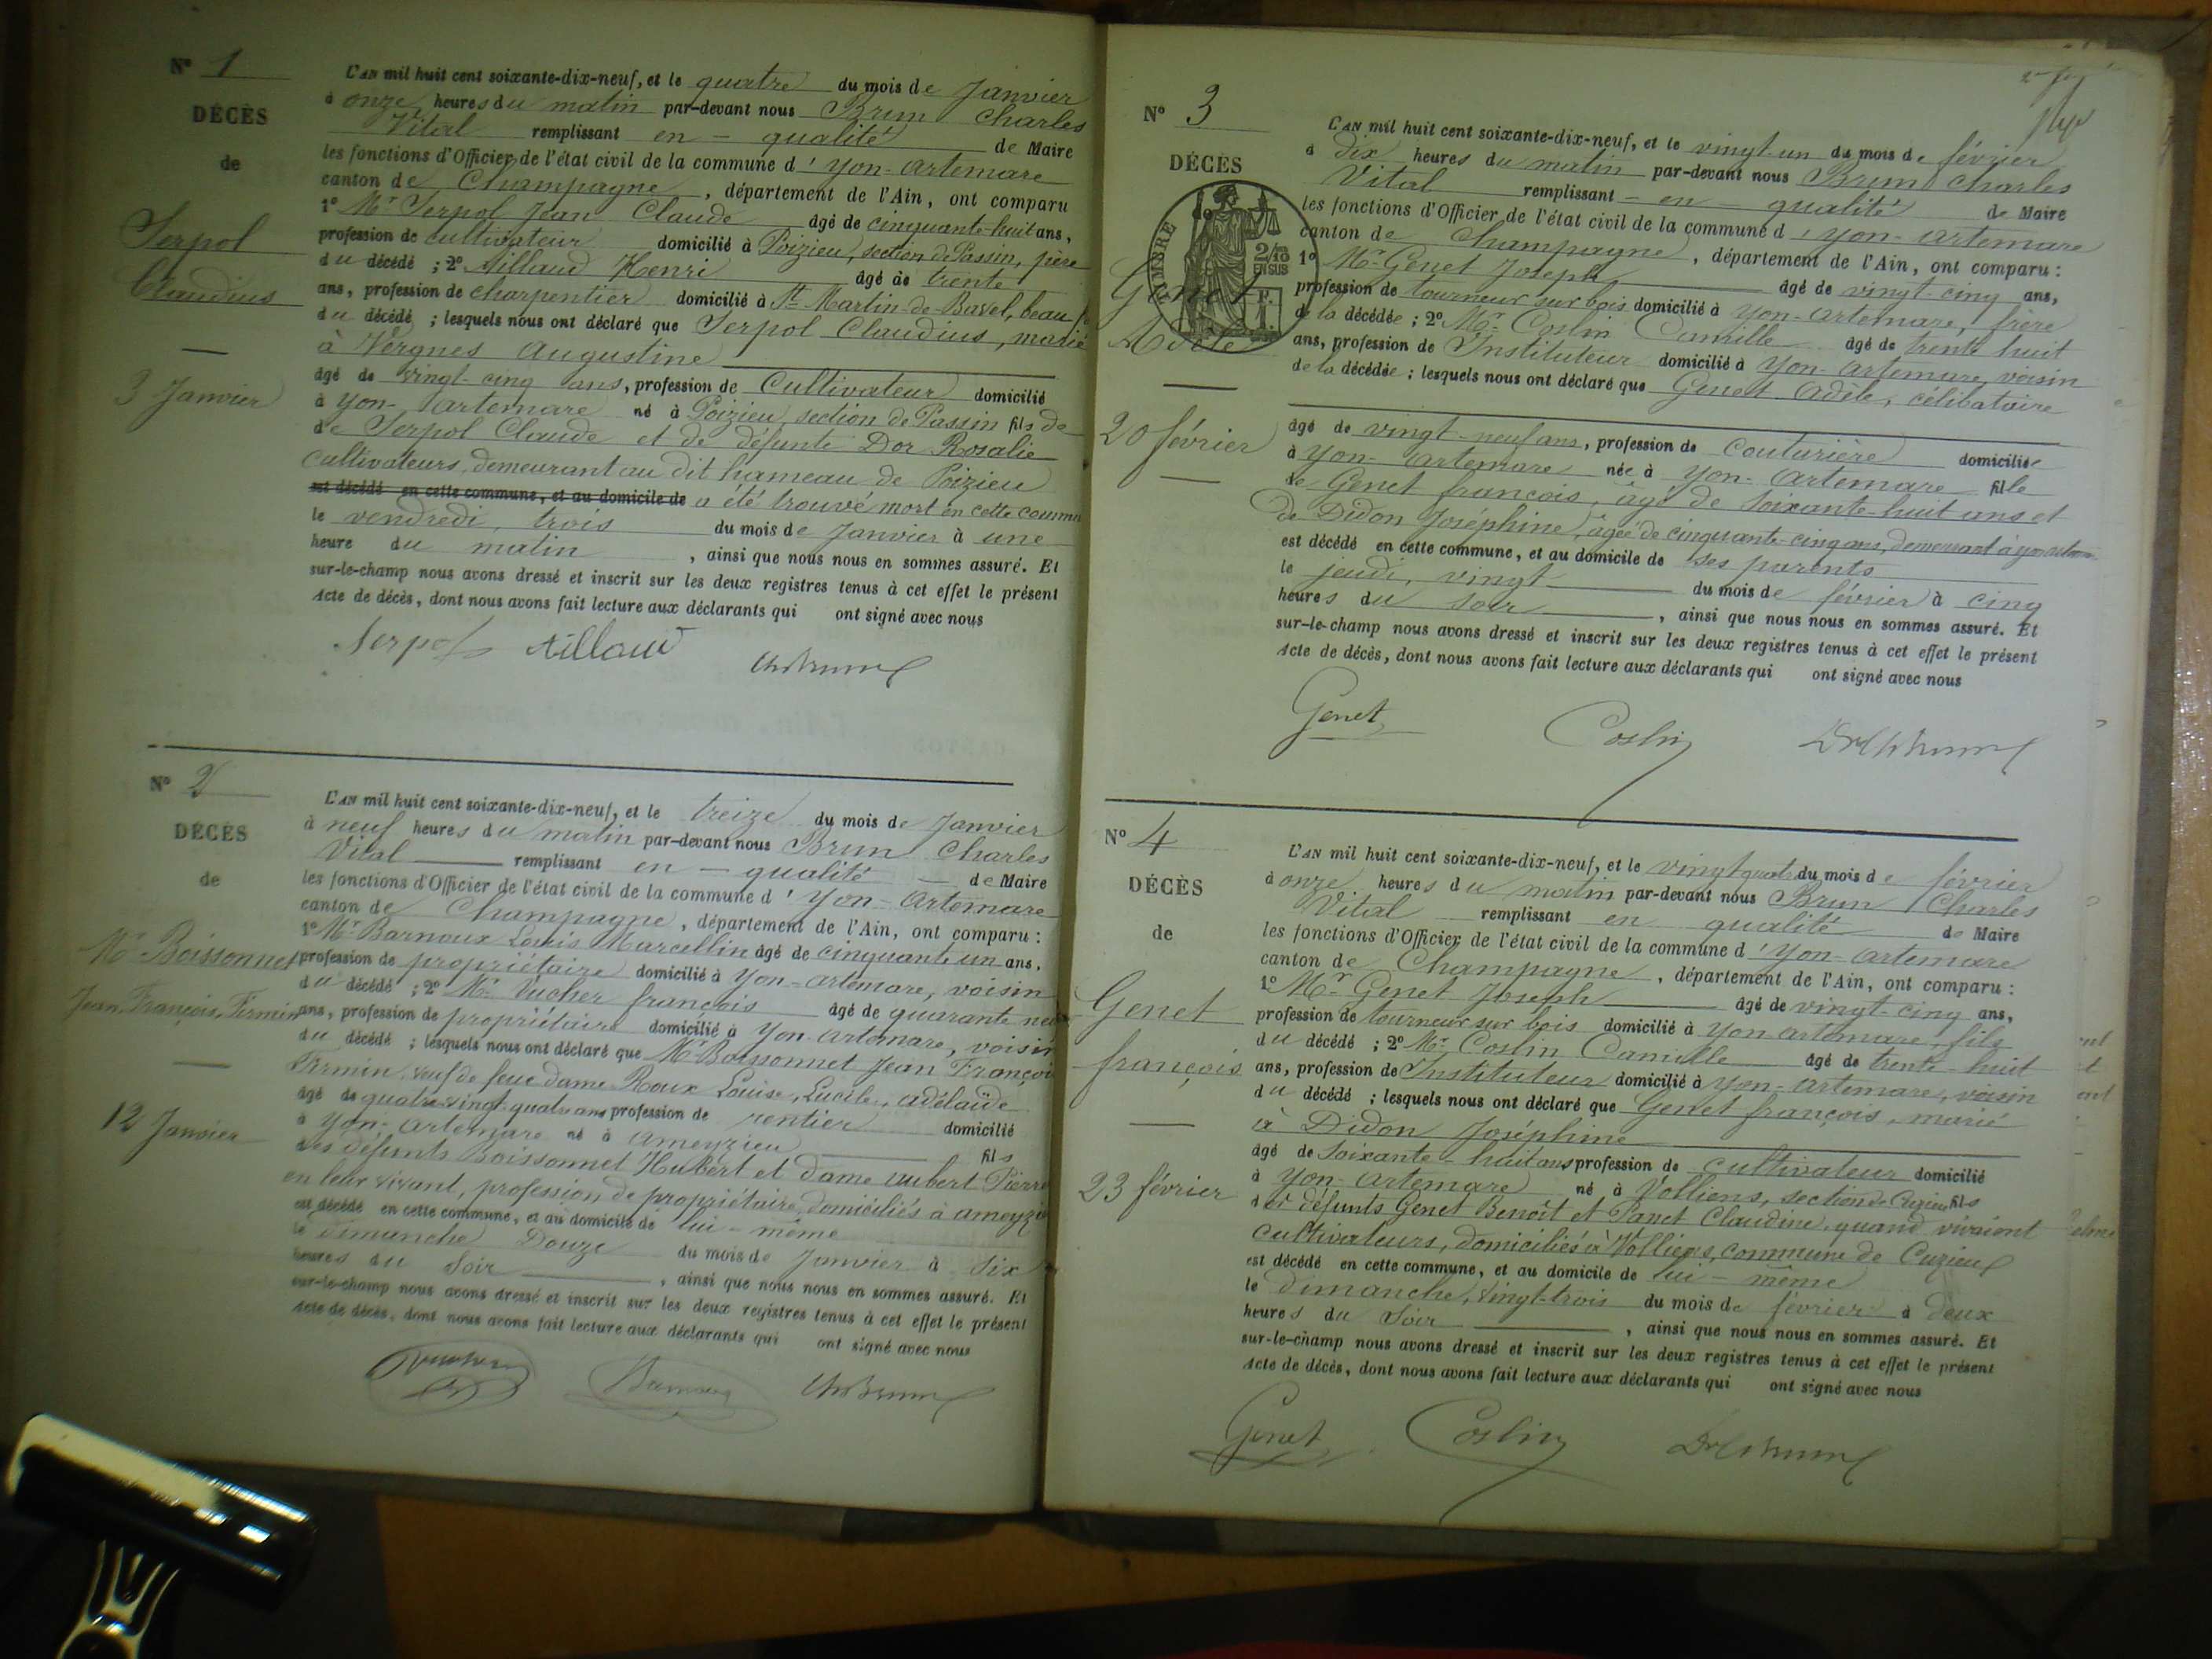 N° 1
DÉCÈS
de
Serpol
Claudius
3 Janvier
L'AN mil huit cent soixante-dix-neuf, et le quatre du mois de Janvier
à onze heures du matin par-devant nous Brun Charles
Vital remplissant en - qualité de Maire
les fonctions d'Officier de l'état civil de la commune d'Yon-Artemare
canton de Champagne, département de l'Ain, ont comparu
1° Mr Serpol Jean Claude âgé de cinquante-huit ans,
profession de cultivateur domicilié à Poizieu, section de Passin, père
du décédé ; 2° Aillaud Henri âgé de trente
ans, profession de charpentier domicilié à St Martin-de-Bavel, beau
du décédé ; lesquels nous ont déclaré que Serpol Claudius, marié
à Vergnes Augustine
âgé de vingt-cinq ans, profession de Cultivateur domicilié
à Yon-Artemare né à Poizieu, section de Passin fils de
de Serpol Claude et de défunte Dor Rosalie
cultivateurs, demeurant au dit hameau de Poizieu
est décédé en cette commune, et au domicile de a été trouvé mort en cette commu
le vendredi, trois du mois de Janvier à une
heure du matin, ainsi que nous nous en sommes assuré. Et
sur-le-champ nous avons dressé et inscrit sur les deux registres tenus à cet effet le présent
Acte de décès, dont nous avons fait lecture aux déclarants qui ont signé avec nous
Serpol Aillaud Ch Brun
N° 2
DÉCÈS
de
Mr Boissonnet
Jean, François, Firmin
12 Janvier
L'AN mil huit cent soixante-dix-neuf, et le treize du mois de Janvier
à neuf heures du matin par-devant nous Brun Charles
Vital remplissant en - qualité - de Maire
les fonctions d'Officier de l'état civil de la commune d'Yon-Artemare
canton de Champagne, département de l'Ain, ont comparu :
1° Mr Barnoux Louis Marcellin âgé de cinquante un ans,
profession de propriétaire domicilié à Yon-Artemare, voisin
du décédé ; 2° Mr Vucher françois âgé de quarante neuf
ans, profession de propriétaire domicilié à Yon-Artemare, voisin
du décédé ; lesquels nous ont déclaré que Mr Boissonnet Jean François
Firmin, veuf de feue dame Roux Louise, Lucile, adélaïde
âgé de quatre-vingt-quatre ans profession de rentier domicilié
à Yon-Artemare né à Ameyzieu fils
des défunts Boissonnet Hubert et dame Aubert Pierre
en leur vivant, profession de propriétaire, domiciliés à ameyzi
est décédé en cette commune, et au domicile de lui-même
le Dimanche Douze du mois de Janvier à Six
heures du Soir, ainsi que nous nous en sommes assuré. Et
sur-le-champ nous avons dressé et inscrit sur les deux registres tenus à cet effet le présent
Acte de décès, dont nous avons fait lecture aux déclarants qui ont signé avec nous
Vucher Barnoux Ch Brun
N° 3
DÉCÈS
de
TIMBRE
2/10
EN SUS
Genet
Adèle
20 février
L'AN mil huit cent soixante-dix-neuf, et le vingt-un du mois de février
à Dix heures du matin par-devant nous Brun Charles
Vital remplissant - en - qualité de Maire
les fonctions d'Officier de l'état civil de la commune d'Yon-Artemare
canton de Champagne, département de l'Ain, ont comparu :
1° Mr Genet Joseph âgé de vingt-cinq ans,
profession de tourneur sur bois domicilié à Yon-Artemare, frère
de la décédée ; 2° Mr Coslin Camille âgé de trente huit
ans, profession de Instituteur domicilié à Yon-Artemare, voisin
de la décédée ; lesquels nous ont déclaré que Genet Adèle, célibataire
âgé de vingt-neuf ans, profession de couturière domiciliée
à Yon-Artemare née à Yon-Artemare fille
de Genet françois, âgé de Soixante-huit ans et
de Didon Joséphine, âgée de cinquante-cinq ans, demeurant à yon artemare
est décédé en cette commune, et au domicile de ses parents
le jeudi, vingt du mois de février à cinq
heures du Soir, ainsi que nous nous en sommes assuré. Et
sur-le-champ nous avons dressé et inscrit sur les deux registres tenus à cet effet le présent
Acte de décès, dont nous avons fait lecture aux déclarants qui ont signé avec nous
Genet Coslin Dr Ch Brun
N° 4
DÉCÈS
de
Genet
françois
23 février
L'AN mil huit cent soixante-dix-neuf, et le vingt quatre du mois de février
à onze heures du matin par-devant nous Brun Charles
Vital remplissant en qualité de Maire
les fonctions d'Officier de l'état civil de la commune d'Yon-Artemare
canton de Champagne, département de l'Ain, ont comparu :
1° Mr Genet Joseph âgé de vingt-cinq ans,
profession de tourneur sur bois domicilié à Yon artemare, fils
du décédé ; 2° Mr Coslin Camille âgé de trente-huit
ans, profession de Instituteur domicilié à Yon-Artemare, voisin
du décédé ; lesquels nous ont déclaré que Genet françois, marié
à Didon Joséphine
âgé de Soixante-huit ans profession de cultivateur domicilié
à Yon-Artemare né à Volliens, section de Cuzieu fils
des défunts Genet Benoît et Panet Claudine, quand vivaient
cultivateurs, domiciliés à Volliens, commune de Cuzieu
est décédé en cette commune, et au domicile de lui-même
le Dimanche, vingt-trois du mois de février à deux
heures du Soir, ainsi que nous nous en sommes assuré. Et
sur-le-champ nous avons dressé et inscrit sur les deux registres tenus à cet effet le présent
Acte de décès, dont nous avons fait lecture aux déclarants qui ont signé avec nous
Genet Coslin Dr Ch Brun